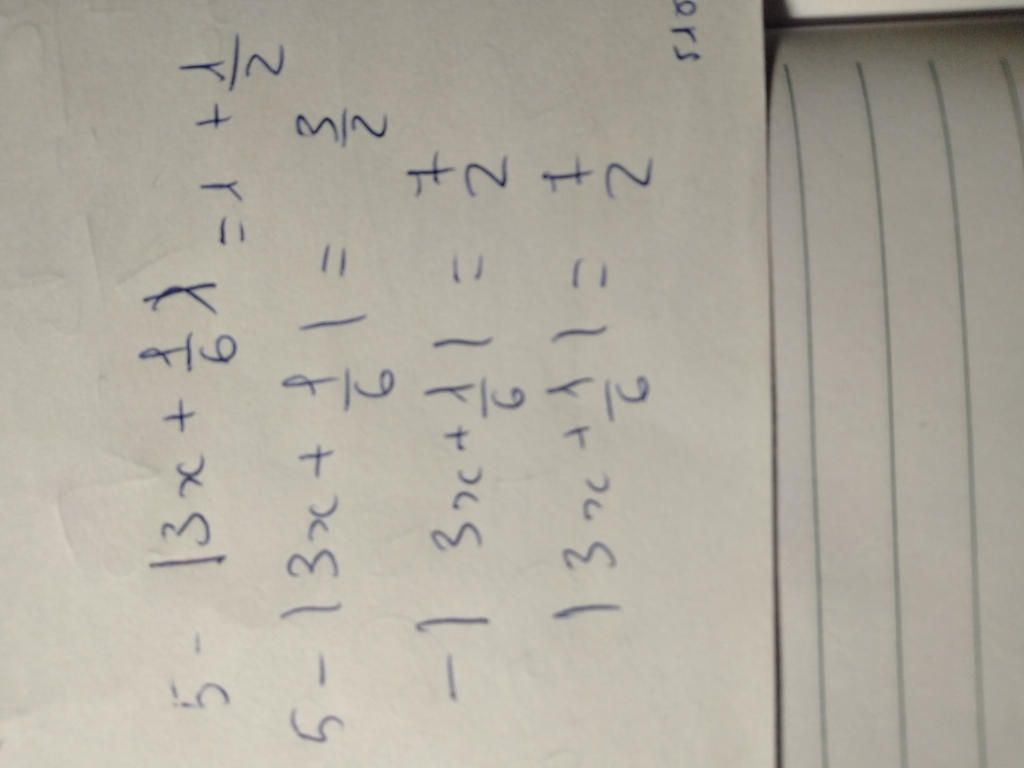 5 - |3x + 1/6| = 1 + 1/2
5 - |3x + 1/6| = 3/2
- |3x + 1/6| = 7/2
|3x + 1/6| = 7/2